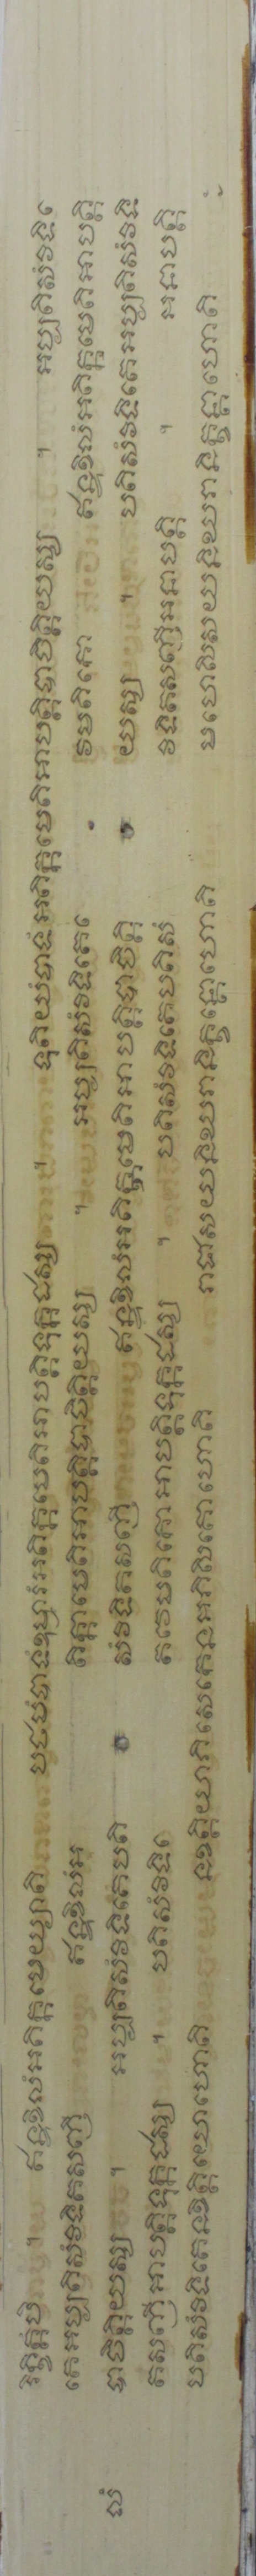 រិក្ខិត្តំបិ ។ ឥន្ទខិលំអតិក្កមេយ្យាតិ បឋមំបាទំឧម្មារំអតិក្កមេតិអាបត្តិទុក្កដស្ស ។ ទុតិយំបាទំអតិក្កមេតិអាបត្តិបាចិត្តិយស្ស ។ អប្បតិសំវទិ
តេអប្បតិសំវទិតសញី ឥន្ទខិលំអ តិក្កាមេតិអាបត្តិបាចិត្តិយស្ស ។ អប្បតិសំវទិតេ វេមតិកោ ឥន្ទខិលំអតិក្កមេតិអាបត្តិ
លំ បាចិត្តិយស្ស ។ អប្បតិសំវទិតេបតិ សំវទិតសញី ឥន្ទខិលំអតិក្កមេតិអាបត្តិបាចិត្តិ យស្ស ។ បតិសំវទិតេអប្បតិសំវទិ
តសញីអាបត្តិទុក្កដស្ស ។ បតិសំវទិ តេវេមតិកោអាបត្តិទុក្កដស្ស ។ បតិសំវទិតេបតិសំ វទិតសញីអនាបត្តិ ។ អនាបត្តិ
បតិសំវទិតេនខិត្តិយោហោតិ នខត្តិយាភិសេកេនអភិសិតោហោតិ រាជាសយនិឃរានិក្ខន្តោហោតិ មហេសិសយនិឃរានិក្ខន្តាហោតិ